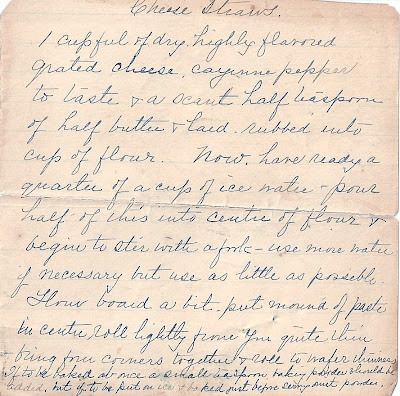 Cheese Straws.
1 cupful of dry, highly flavored
grated cheese, cayinne pepper
to taste & a scant half teaspoon
of half butter & lard. rubbed into
cup of flour. Now, have ready a
quarter of a cup of ice water - pour
half of this into centre of flour &
begin to stir with a fork - use more water
if necessary but use as little as possible.
Flour board a bit. put mound of paste
in centre, roll lightly from you quite thin
& bring four corners together & roll to wafer thinness
If to be baked at once a small teaspoon baking powder should be
added, but if to be put on ice & baked just before serving omit powder.